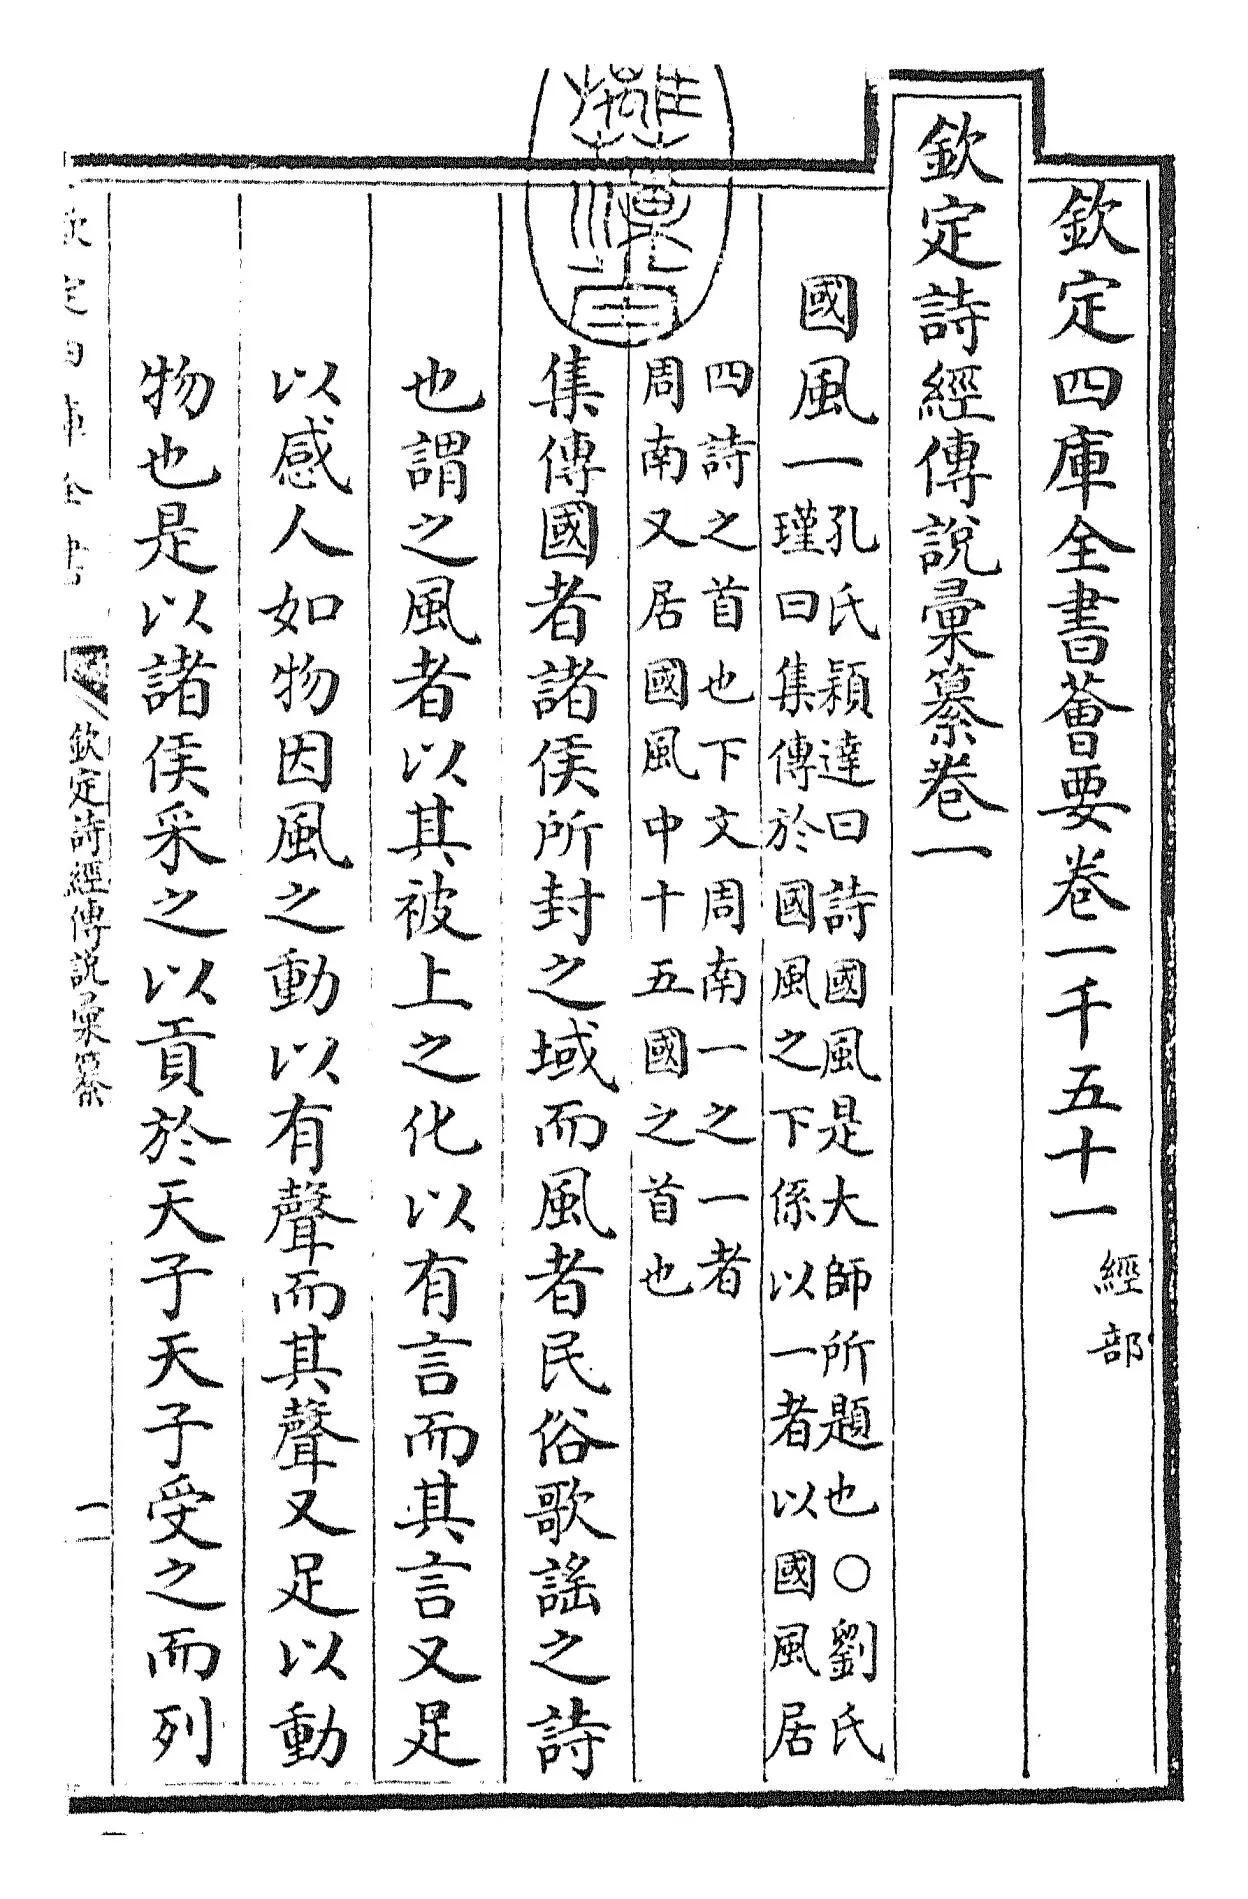 欽定四庫全書薈要卷一千五十一
經部
欽定詩經傳說彙纂卷一
國風一
孔氏穎達曰詩國風是大師所題也○劉氏
瑾曰集傳於國風之下係以一者以國風居
四詩之首也下文周南一之一者
周南又居國風中十五國之首也
集傳國者諸侯所封之域而風者民俗歌謠之詩
也謂之風者以其被上之化以有言而其言又足
以感人如物因風之動以有聲而其聲又足以動
物也是以諸侯采之以貢於天子天子受之而列
欽定四庫全書
欽定詩經傳說彙纂
一